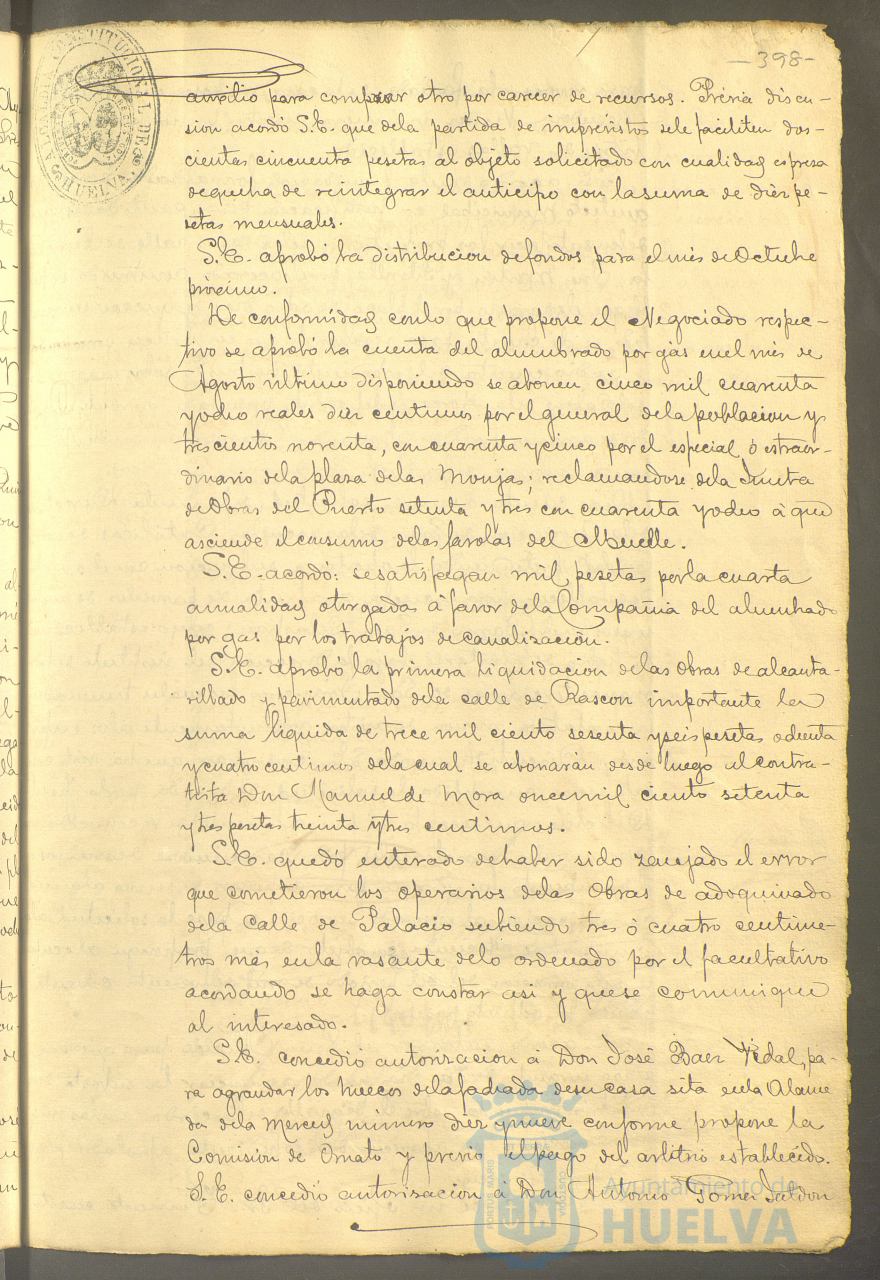 -398-
ALCALDIA CONSTITUCIONAL DE HUELVA
auxilio para comprar otro por carecer de recursos. Prévia discu-
sion acordó S.E. que dela partida de imprevistos sele faciliten dos-
cientas cincuenta pesetas al objeto solicitado con cualidad espresa
dequeha de reintegrar el anticipo con lasuma de diez pe-
setas mensuales.
S.E. aprobó la distribucion defondos para el mes de Octubre
próximo.
De conformidad conlo que propone el Negociado respec-
tivo se aprobó la cuenta del alumbrado por gas enel mes de
Agosto último disponiendo se abonen cinco mil cuarenta
yocho reales diez centimos por el general dela poblacion y
trescientos noventa, con cuarenta ycinco por el especial ó estraor-
dinario dela plaza delas Monjas; reclamandose dela Junta
deObras del Puerto setenta y tres con cuarenta yocho á que
asciende el consumo delas farolas del Muelle.
S.E. acordó: sesatisfagan mil pesetas porla cuarta
anualidad otorgada á favor dela Compañia del alumbrado
por gas por los trabajos decanalización.
S.E. aprobó la primera liquidacion delas obras de alcanta-
rillado y pavimentado dela calle de Rascon importante la
suma liquida de trece mil ciento sesenta yseis pesetas ochenta
ycuatro centimos dela cual se abonarán desde luego al contra-
tista Don Manuel de Mora oncemil ciento setenta
ytres pesetas treinta ytres centimos.
S.E. quedó enterado dehaber sido zanjado el error
que cometieron los operarios delas Obras de adoquinado
dela Calle de Palacio subiendo tres ó cuatro centime-
tros más enla rasante delo ordenado por el facultativo
acordando se haga constar asi y quese comunique
al interesado.
S.E. concedió autorizacion á Don José Baez Vidal, pa-
ra agrandar los huecos delafachada desucasa sita enla Alame
da dela Merced número diez ynueve conforme propone la
Comision de Ornato y previo elpago del arbitrio establecido.
S.E. concedió autorizacion á Don Antonio Gomez Saldon
PORTUS MARIS CUSTODIA
Ayuntamiento de
HUELVA